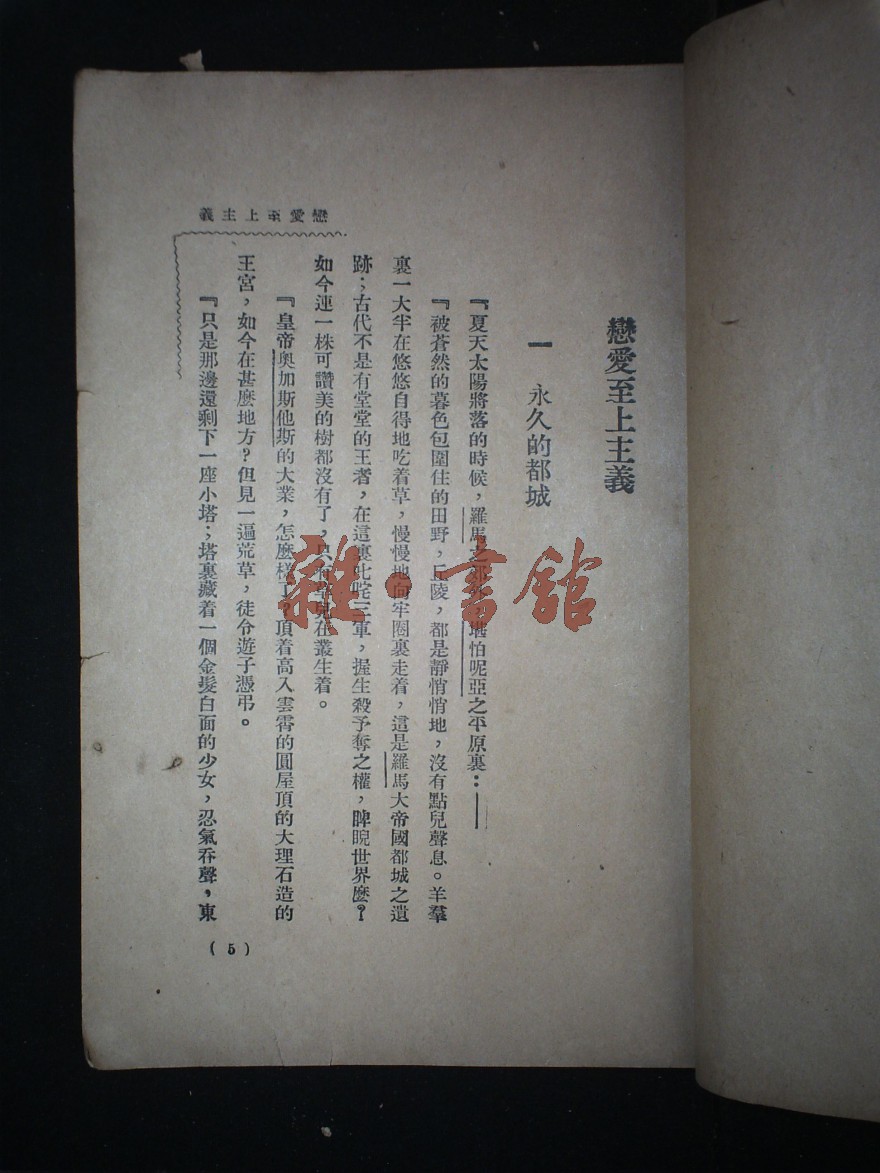 戀愛至上主義
戀愛至上主義
一 永久的都城
『夏天太陽將落的時候,羅馬之郊外堪怕呢亞之平原裏:——
『被蒼然的暮色包圍住的田野,丘陵,都是靜悄悄地,沒有點兒聲息。羊羣
裏一大半在悠悠自得地吃着草,慢慢地向牢圈裏走着,這是羅馬大帝國都城之遺
跡;古代不是有堂堂的王者,在這裏叱咤三軍,握生殺予奪之權,睥睨世界麼?
如今連一株可讚美的樹都沒有了,只有草兒在叢生着。
『皇帝奧加斯他斯的大業,怎麼樣了?頂着高入雲霄的圓屋頂的大理石造的
王宮,如今在甚麼地方?但見一遍荒草,徒令遊子憑弔。
『只是那邊還剩下一座小塔;塔裏藏着一個金髮白面的少女,忍氣吞聲,東
(5)
雜·書館